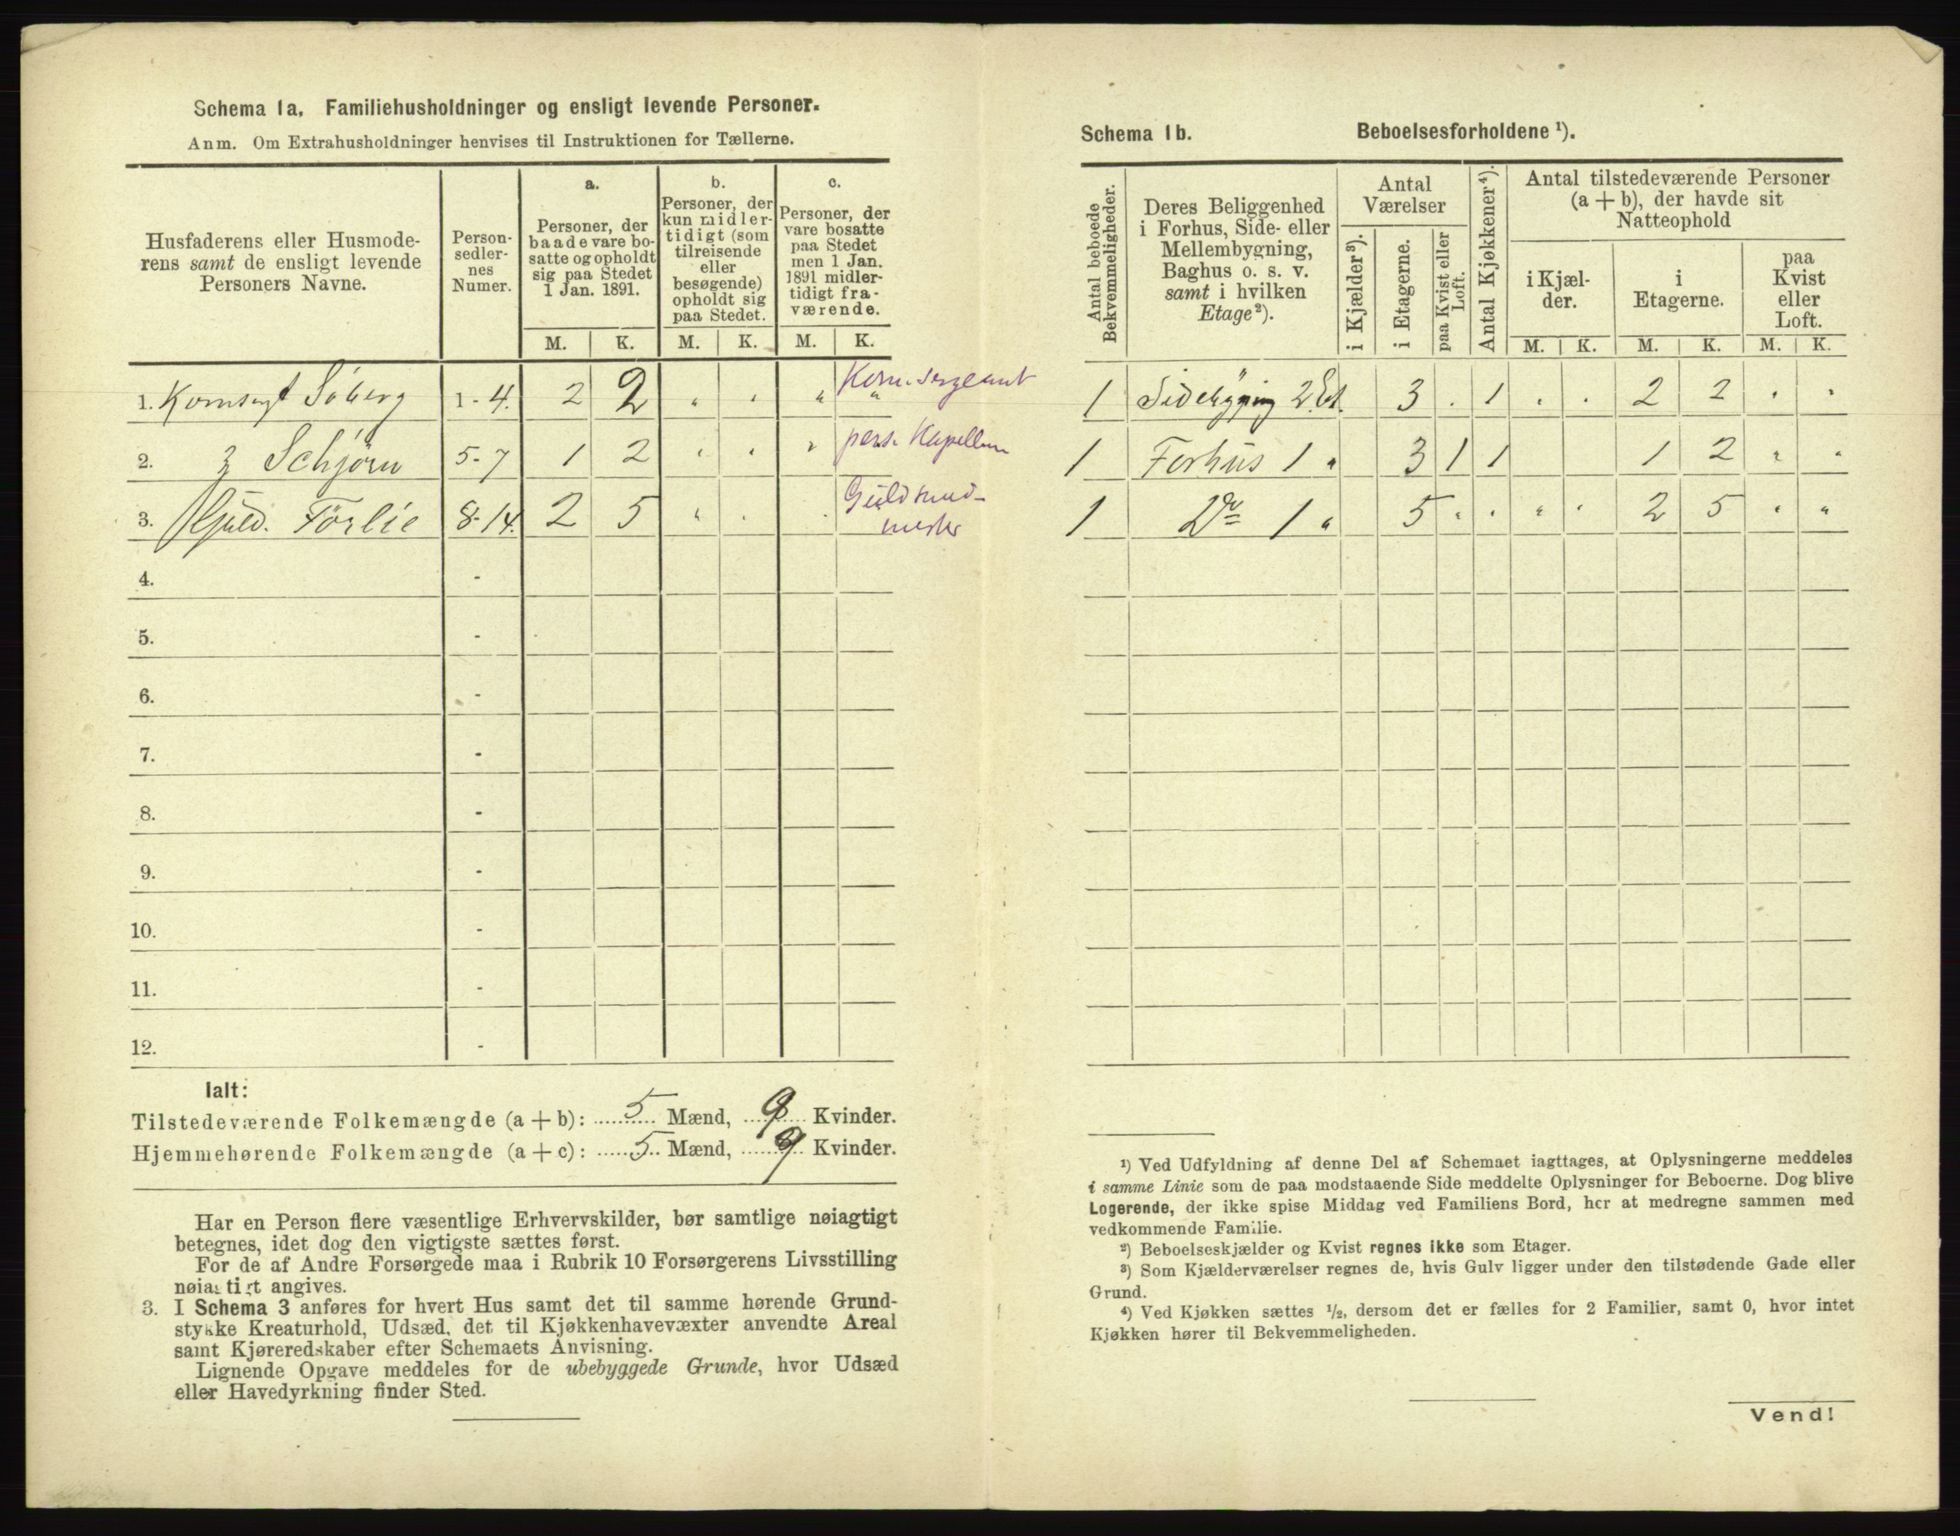 Schema 1a. Familiehusholdninger og ensligt levende Personer.
Anm. Om Extrahusholdninger henvises til Instruktionen for Tællerne.
Husfaderens eller Husmode-
rens samt de ensligt levende
Personers Navne.
Person-
sedler-
nes
Numer.
a.
Personer, der
baade vare bo-
satte og opholdt
sig paa Stedet
1 Jan. 1891.
b.
Personer, der
kun midler-
tidigt (som
tilreisende
eller
besøgende)
opholdt sig
paa Stedet.
c.
Personer, der
vare bosatte
paa Stedet
men 1 Jan.
1891 midler-
tidigt fra-
værende.
M. K. M. K. M. K.
1. Komsergt Söberg 1-4. 2 2 " " " " Kom.sergeant
2. Schjörn 5-7 1 2 " " " pers. Kapellan
3. Guld. Förlie 8-14. 2 5 " . . Guldsmed-
mester
4. -
5. -
6. -
7. -
8. -
9. -
10. -
11. -
12. -
Ialt:
Tilstedeværende Folkemængde (a + b): 5 Mænd, 9 Kvinder.
Hjemmehørende Folkemængde (a + c): 5 Mænd, 9 Kvinder.
Har en Person flere væsentlige Erhvervskilder, bør samtlige nøiagtigt
betegnes, idet dog den vigtigste sættes først.
For de af Andre Forsørgede maa i Rubrik 10 Forsørgerens Livsstilling
nøiagtigt angives.
3. I Schema 3 anføres for hvert Hus samt det til samme hørende Grund-
stykke Kreaturhold, Udsæd, det til Kjøkkenhavevæxter anvendte Areal
samt Kjøreredskaber efter Schemaets Anvisning.
Lignende Opgave meddeles for de ubebyggede Grunde, hvor Udsæd
eller Havedyrkning finder Sted.
Schema 1b. Beboelsesforholdene ¹).
Antal beboede
Bekvemmeligheder.
Deres Beliggenhed
i Forhus, Side- eller
Mellembygning,
Baghus o. s. v.
samt i hvilken
Etage²).
Antal
Værelser
i Kjælder³).
i Etagerne.
paa Kvist eller
Loft.
Antal Kjøkkener⁴).
Antal tilstedeværende Personer
(a + b), der havde sit
Natteophold
i Kjæl-
der.
i
Etagerne.
paa
Kvist
eller
Loft.
M. K. M. K. M. K.
1 Sidebygning 2 Et. 3 . 1 . . 2 2 " "
1 Forhus 1 " 3 1 1 1 2 " "
1 Do 1 " 5 " " " " 2 5 " "
¹) Ved Udfyldning af denne Del af Schemaet iagttages, at Oplysningerne meddeles
i samme Linie som de paa modstaaende Side meddelte Oplysninger for Beboerne. Dog blive
Logerende, der ikke spise Middag ved Familiens Bord, her at medregne sammen med
vedkommende Familie.
²) Beboelseskjælder og Kvist regnes ikke som Etager.
³) Som Kjælderværelser regnes de, hvis Gulv ligger under den tilstødende Gade eller
Grund.
⁴) Ved Kjøkken sættes ½, dersom det er fælles for 2 Familier, samt 0, hvor intet
Kjøkken hører til Bekvemmeligheden.
Vend!